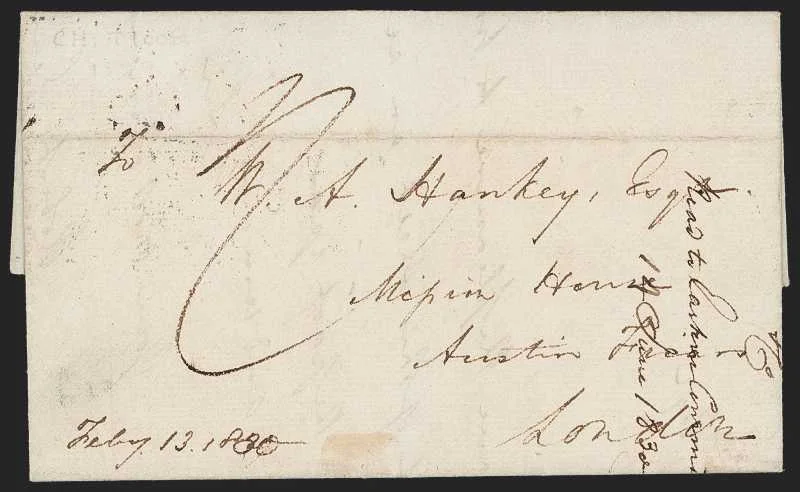 To
W. A. Hankey, Esqr.
Mission House
Austin Friars
London
Feby 13. 1830
Read to Eastern Committee
14 June 1830